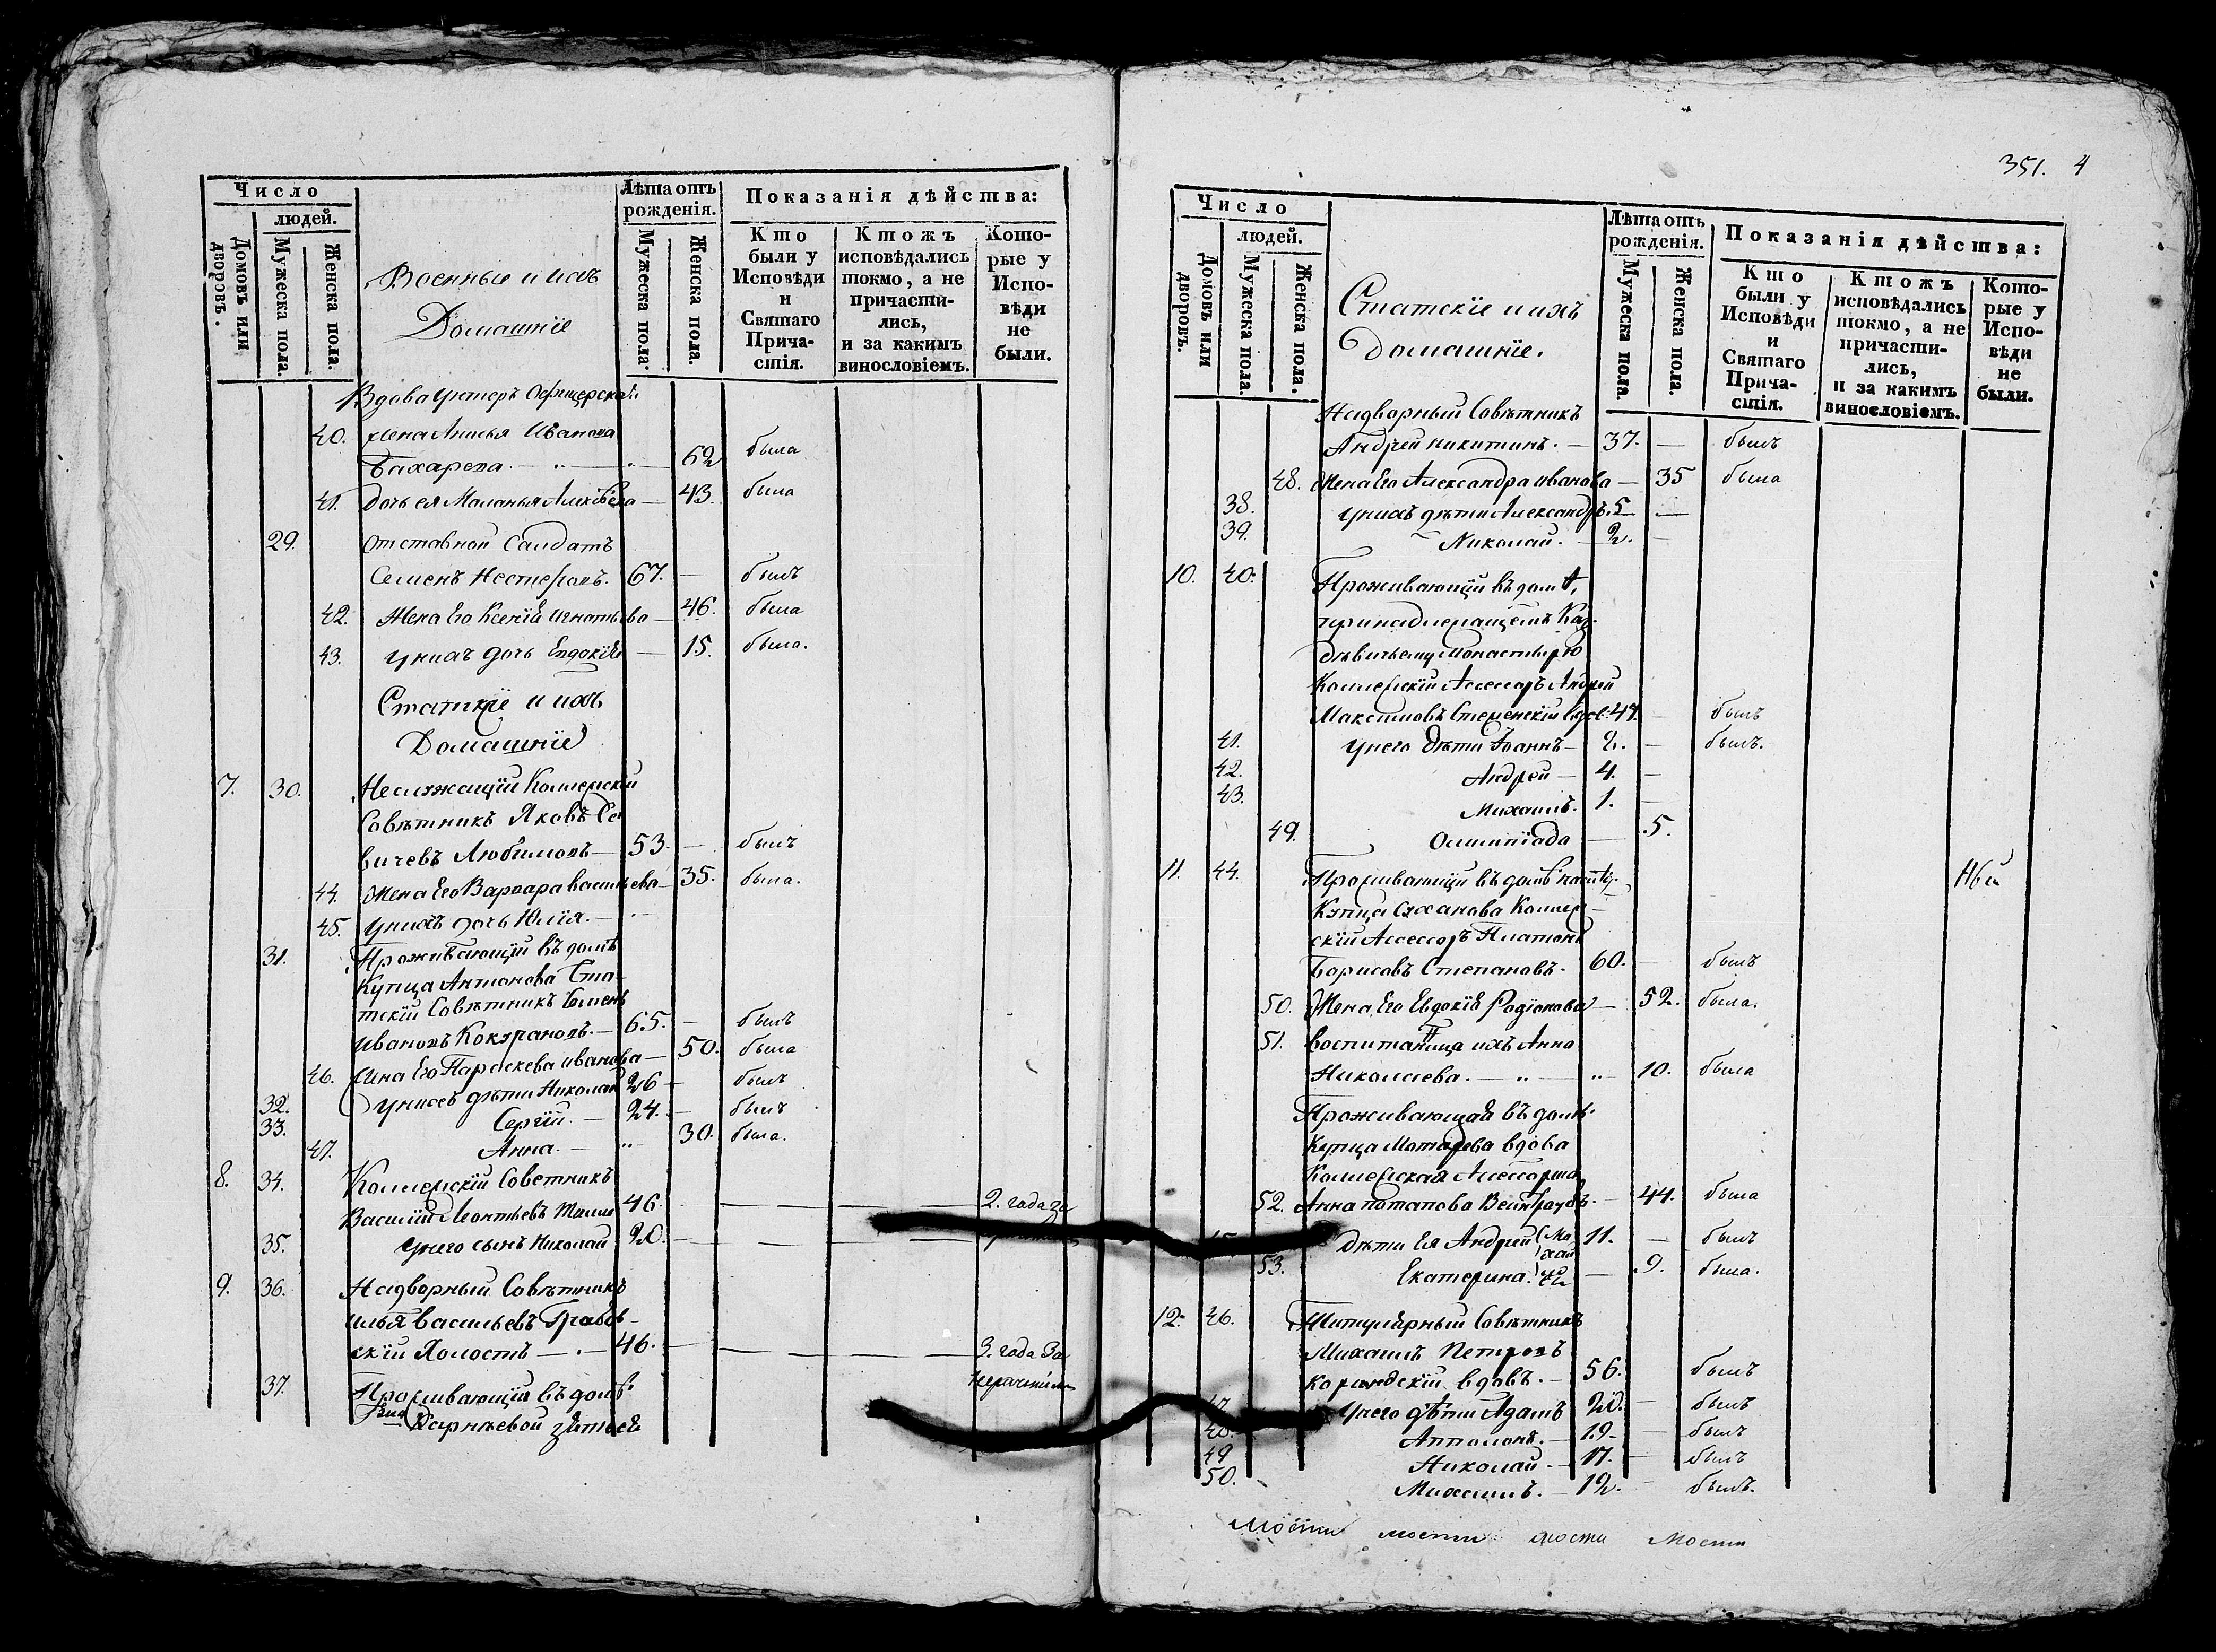 Число
людей.
Домовъ или дворовъ.
Мужеска пола.
Женска пола.
Военные и ихъ
Домашніе
Лѣта отъ рожденія.
Мужеска пола.
Женска пола.
Показанія дѣйства:
Кто были у Исповѣди и Святаго Причастія.
Ктожъ исповѣдались токмо, а не причастились, и за какимъ винословіемъ.
Которые у Исповѣди не были.
Вдова Унтеръ Офицерска
40. жена Анисья Иванова
Бахарева. — 62 была
41. Дочь ея Маланья — 43. была
29. Отставной Салдатъ
Семенъ Нестеровъ. 67. — былъ
42. Жена Его Ксенія Игнатьева — 46. была
43. У нихъ дочь Евдокія — 15. была.
Статскіе и ихъ
Домашніе
7. 30. Неслужащій Коллежскій
Совѣтникъ Яковъ
вичевъ Любимовъ — 53. — былъ
44. Жена Его Варвара Васильева — 35. была.
45. У нихъ дочь Юлія. —
31. Проживающій въ домѣ
Купца Антонова Ста-
тскій Совѣтникъ Семенъ
Ивановъ — 65. — былъ
46. Жена Его Параскева Иванова — 50. была
32. У нихъ дѣти Николай 26 — былъ
33. Сергій. — 24. — былъ
47. Анна. — 30. была.
8. 34. Коллежскій Советникъ
Василій Леонтьевъ 46. — 2. года за
35. У него сынъ Николай 20. —
9. 36. Надворный Совѣтникъ
Илья Васильевъ Грабов-
скій Холостъ — 46. — 3. года За
37. Проживающій въ домѣ нераченіемъ
зятьев
351. 4
Число
людей.
Домовъ или дворовъ.
Мужеска пола.
Женска пола.
Статскіе и ихъ
Домашніе.
Лѣта отъ рожденія.
Мужеска пола.
Женска пола.
Показанія дѣйства:
Кто были у Исповѣди и Святаго Причастія.
Ктожъ исповѣдались токмо, а не причастились, и за какимъ винословіемъ.
Которые у Исповѣди не были.
Надворный Совѣтникъ
Андрей Никитинъ. — 37. — былъ
48. Жена Его Александра Иванова — 35 была
38. У нихъ дѣти Александръ. 5 —
39. Николай. — 2. —
10. 40. Проживающій въ домѣ,
принадлежащемъ Каз.
Дѣвичьему Монастырю
Коллежскій Ассессоръ Андрей
Максимовъ вдов. 47. — былъ
41. У него дѣти Іоаннъ — 2. — былъ.
42. Андрей — 4. —
43. Михаилъ. 1. —
49. Олимпіада — 5.
11. 44. Проживающій въ домѣ
Купца Суханова Коллеж-
скій Ассессоръ Платонъ
Борисовъ Степановъ. 60. — былъ
50. Жена Его Евдокія Родіонова — 52. была.
51. Воспитаница ихъ Анна
Николаева. — 10. была
Проживающая въ домѣ
Купца вдова
Коллежская Ассессорша
52. Анна Потапова — 44. была
45. Дѣти Ея Андрей 11. — былъ
53. Екатерина. — 9. была.
12. 46. Титулярный Совѣтникъ
Михаилъ Петровъ
вдовъ. — 56. былъ
47. У него дѣти Адамъ 20. — былъ
48. Апполонъ. — 19 — былъ
49 Николай — 17. — былъ
50. Михаилъ. — 12. — былъ.
Мости мости мости Мости